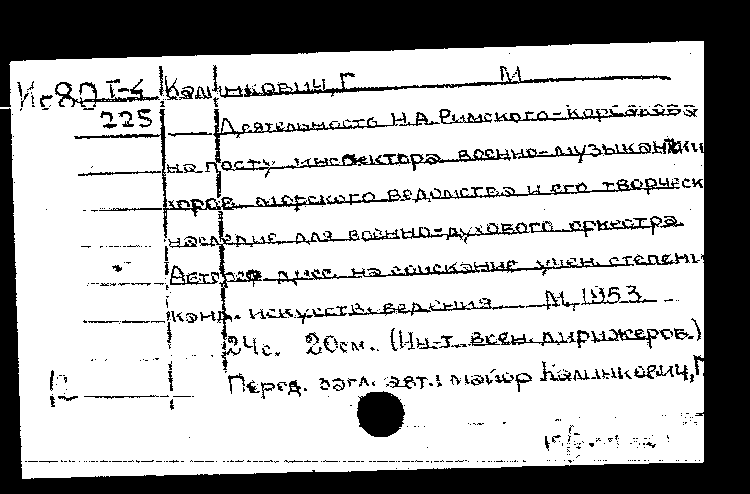 Ис80 Т-4 Калинкович, Г М
225 Деятельность Н.А. Римского-Корсакова
на посту инспектора военно-музыкантски
хоров морского ведомства и его творческ
наследие для военно-духового оркестра.
Автореф. дисс. на соискание учен. степени
канд. искусств. ведения М., 1953
24с. 20см. (Ин-т воен. дирижеров.)
Перед. загл. авт.: майор Калинкович, Г